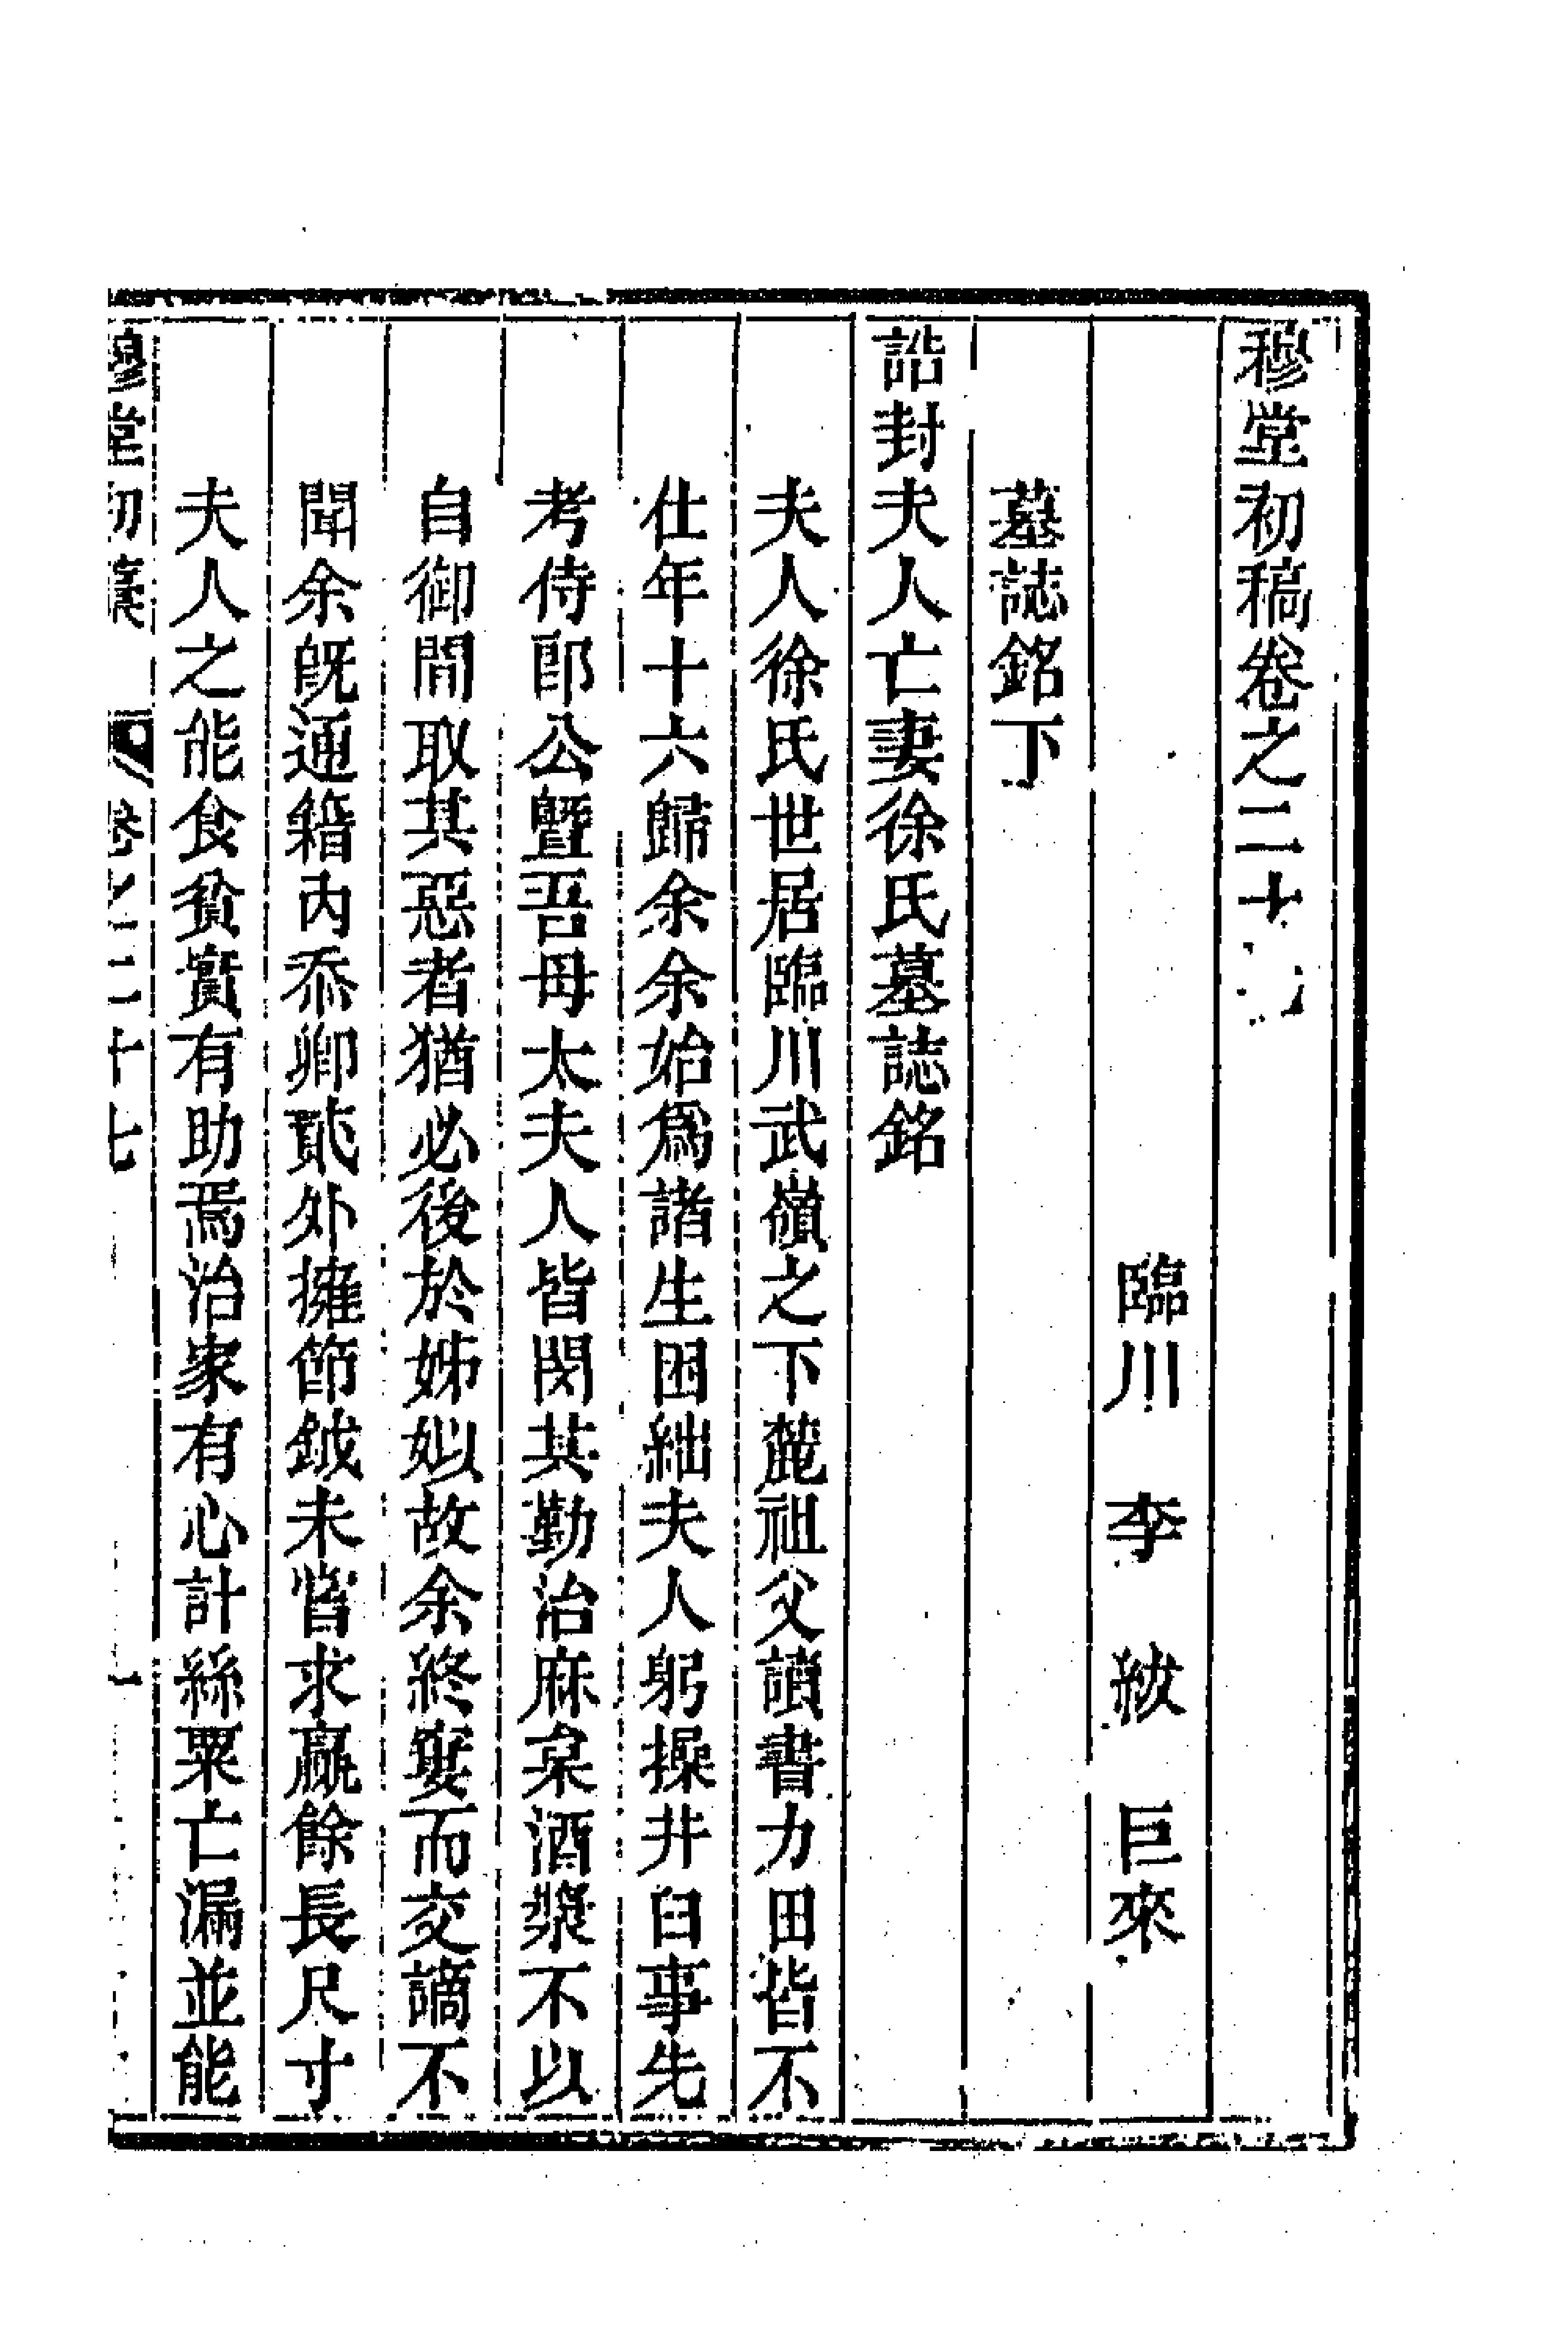 穆堂初稿卷之二十七
臨川李紱巨來
墓誌銘下
誥封夫人亡妻徐氏墓誌銘
夫人徐氏世居臨川武嶺之下麓祖父讀書力田皆不
仕年十六歸余余始爲諸生困絀夫人躬操井臼事先
考侍郎公曁吾母太夫人皆閔其勤治麻枲酒漿不以
自御間取其惡者猶必後於姊姒故余終窶而交謫不
聞余旣通籍內忝卿貳外擁節鉞未嘗求贏餘長尺寸
夫人之能食貧實有助焉治家有心計絲粟亡漏並能
穆堂初稾 卷之二十七 一